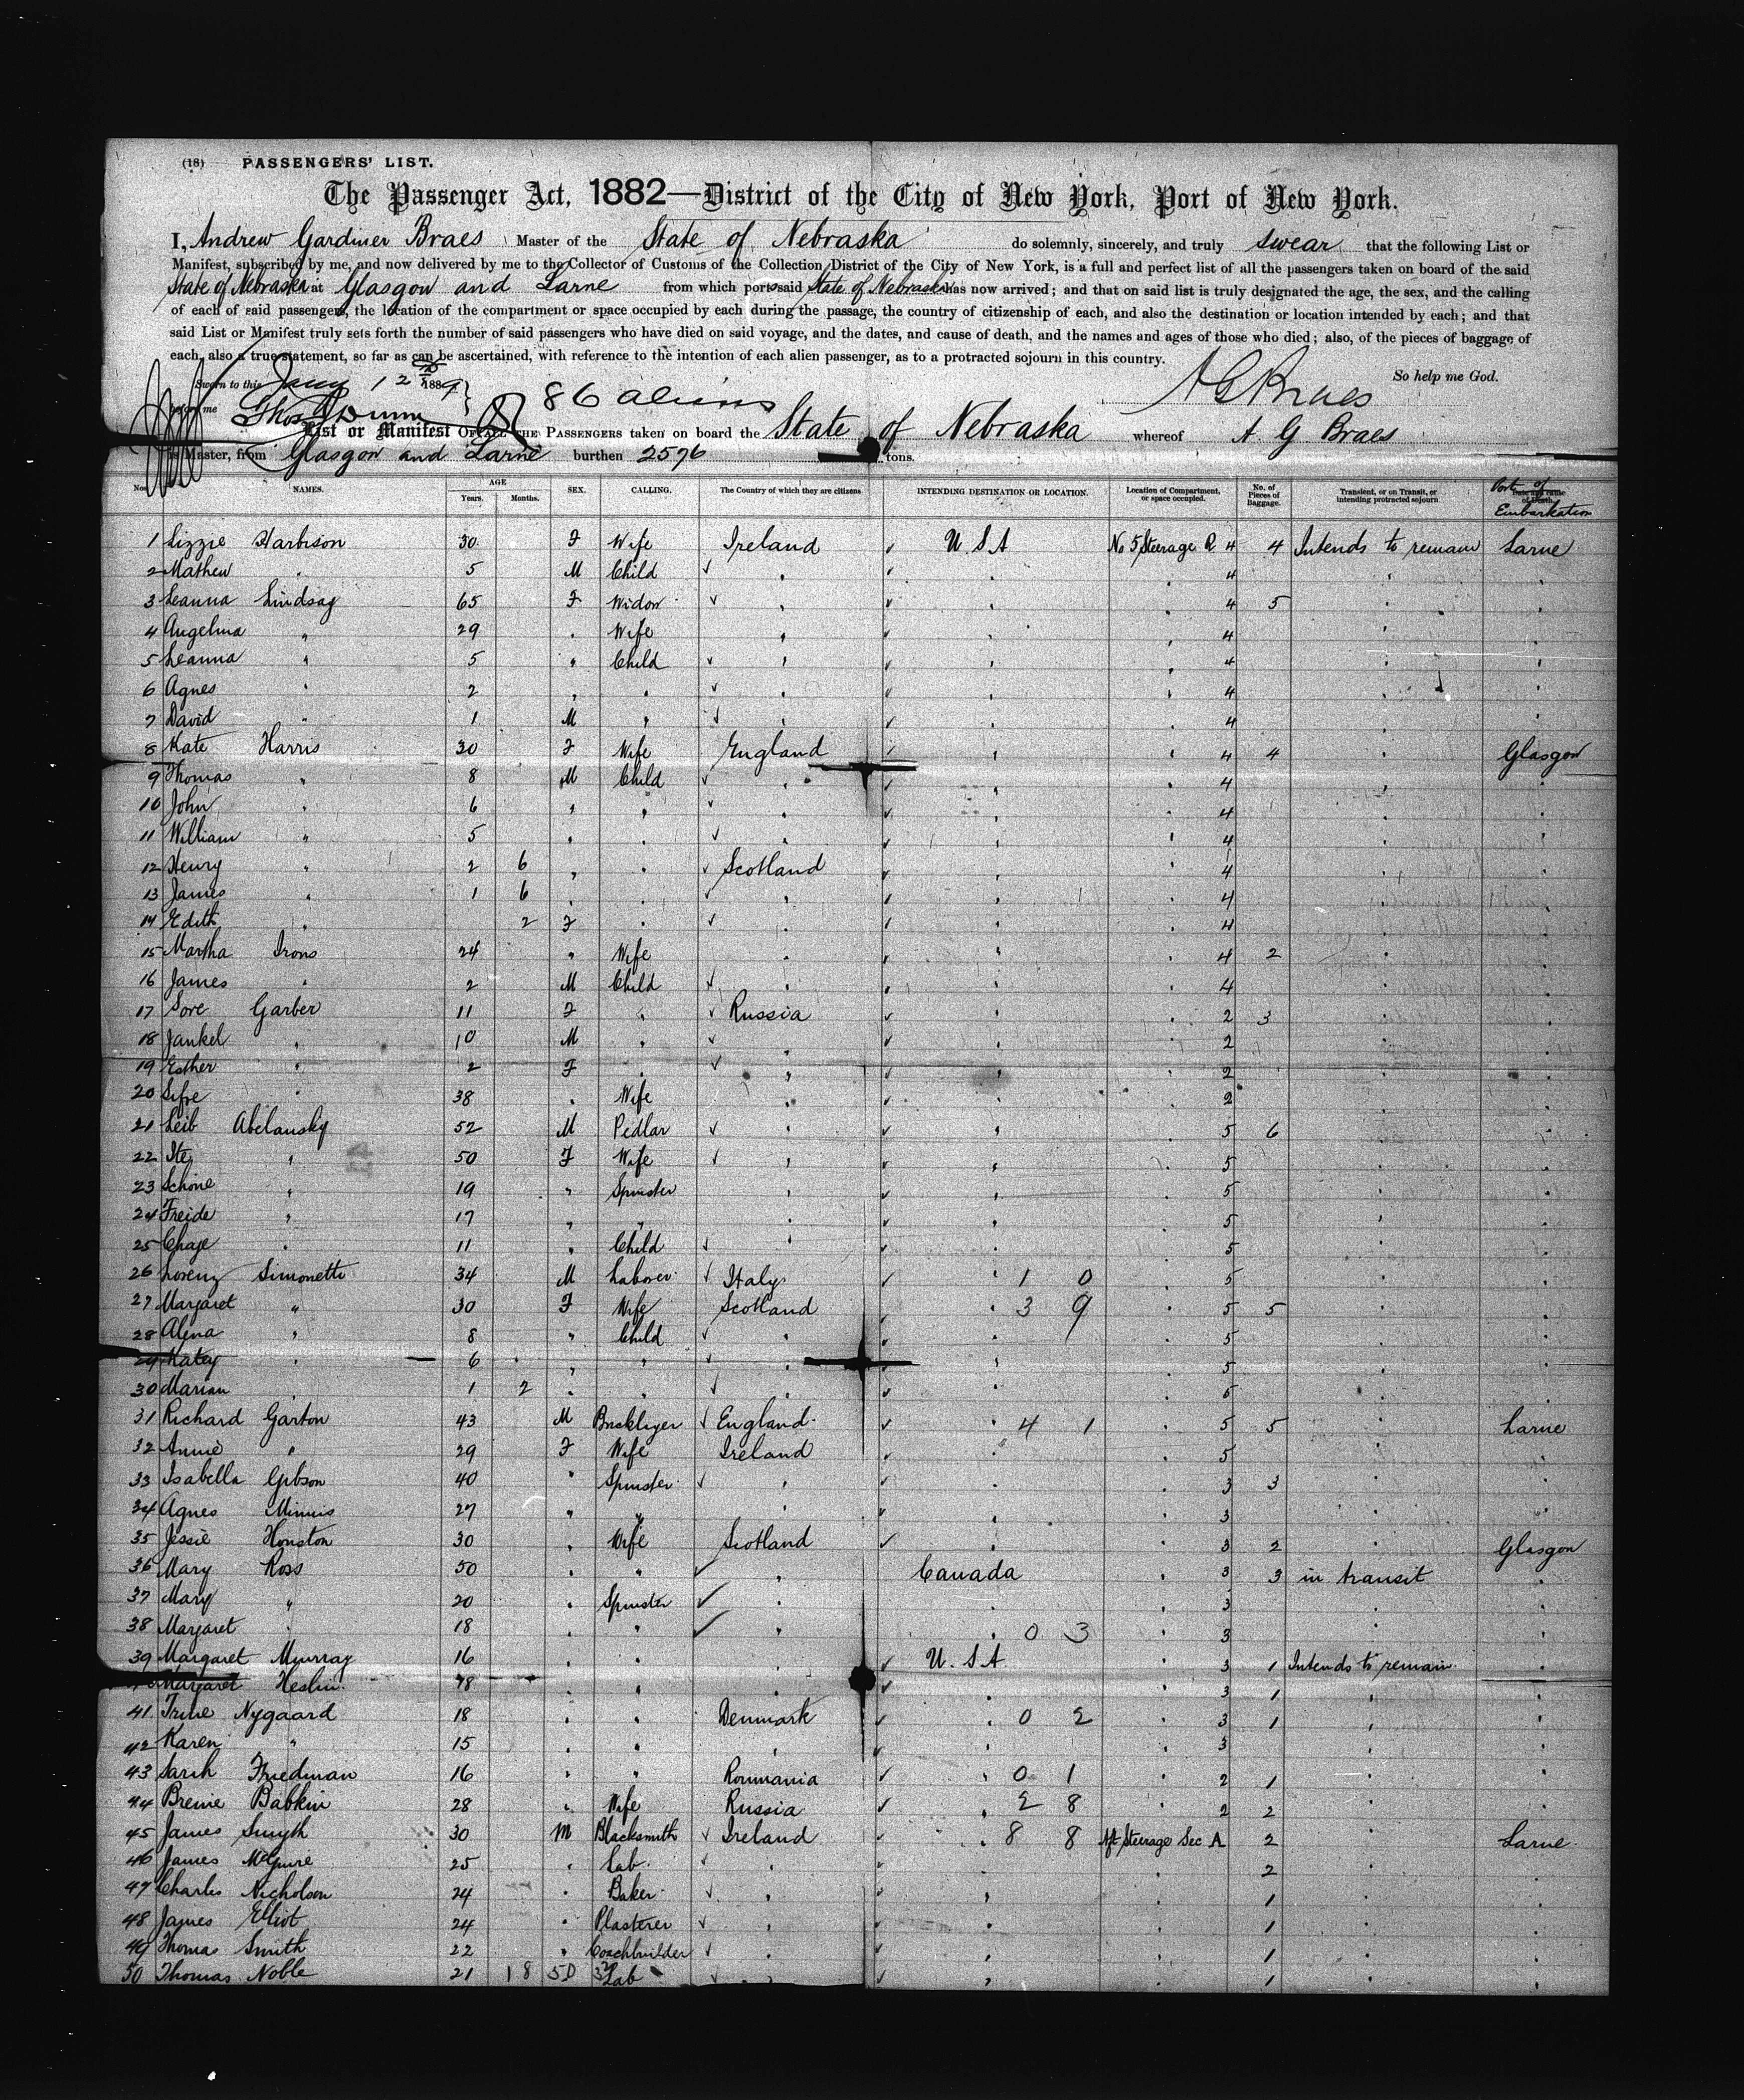 (18) PASSENGERS' LIST.
The Passenger Act, 1882—District of the City of New York, Port of New York.
I, Andrew Gardiner Braes Master of the State of Nebraska do solemnly, sincerely, and truly swear that the following List or
Manifest, subscribed by me, and now delivered by me to the Collector of Customs of the Collection District of the City of New York, is a full and perfect list of all the passengers taken on board of the said
State of Nebraska at Glasgow and Larne from which port said State of Nebraska has now arrived; and that on said list is truly designated the age, the sex, and the calling
of each of said passengers, the location of the compartment or space occupied by each during the passage, the country of citizenship of each, and also the destination or location intended by each; and that
said List or Manifest truly sets forth the number of said passengers who have died on said voyage, and the dates, and cause of death, and the names and ages of those who died; also, of the pieces of baggage of
each, also a true statement, so far as can be ascertained, with reference to the intention of each alien passenger, as to a protracted sojourn in this country.
So help me God.
Sworn to this Jany 12 1889 86 aliens A G Braes
before me Thos Dunn
List or Manifest OF ALL THE PASSENGERS taken on board the State of Nebraska whereof A G Braes
is Master, from Glasgow and Larne burthen 2576 tons.
Nos. NAMES. AGE Years. Months. SEX. CALLING. The Country of which they are citizens INTENDING DESTINATION OR LOCATION. Location of Compartment, or space occupied. No. of Pieces of Baggage. Transient, or on Transit, or intending protracted sojourn. Date and cause of Death. Port of Embarkation
1 Lizzie Harbison 30 F Wife Ireland U.S.A No 5 Steerage R 4 4 Intends to remain Larne
2 Mathew 5 M Child 4
3 Leanna Lindsay 65 F Widow 4 5
4 Angelina " 29 Wife 4
5 Leanna " 5 " Child 4
6 Agnes " 2 4
7 David " 1 M " 4
8 Kate Harris 30 F Wife England 4 4 Glasgow
9 Thomas " 8 M Child 4
10 John " 6 " 4
11 William " 5 4
12 Henry " 2 6 Scotland 4
13 James " 1 6 4
14 Edith " 2 F 4
15 Martha Irons 24 " Wife 4 2
16 James " 2 M Child 4
17 Sore Garber 11 F Russia 2 3
18 Jankel " 10 M " 2
19 Esther " 2 F 2
20 Sifre 38 Wife 2
21 Leib Abelansky 52 M Pedlar 5 6
22 Ite " 50 F Wife 5
23 Schone " 19 " Spinster 5
24 Freide " 17 " " 5
25 Chaje 11 " Child 5
26 Lorenz Simonetti 34 M Laborer Italy 1 0 5
27 Margaret " 30 F Wife Scotland 3 9 5 5
28 Alena " 8 " Child 5
29 Katey 6 " 5
30 Marian 1 2 " 5
31 Richard Garton 43 M Bricklyer England 4 1 5 5 Larne
32 Annie " 29 F Wife Ireland 5
33 Isabella Gibson 40 " Spinster 3 3
34 Agnes 27 " " 3
35 Jessie Houston 30 Wife Scotland 3 2 Glasgow
36 Mary Ross 50 " Canada 3 3 in transit
37 Mary " 20 Spinster 3
38 Margaret 18 " 0 3 3
39 Margaret Murray 16 U.S.A 3 1 Intends to remain
Margaret Heslin 3 1
41 Trine Nygaard 18 Denmark 0 2 3 1
42 Karen " 15 3
43 Sarah Friedman 16 " Roumania 0 1 2 1
44 Breine Babkin 28 Wife Russia 2 8 2 2
45 James Smyth 30 M Blacksmith Ireland 8 8 Aft Steerage Sec A 2 Larne
46 James McGuire 25 Lab 2
47 Charles Nicholson 24 Baker 1
48 James Elliot 24 Plasterer 1
49 Thomas Smith 22 " Coachbuilder 1
50 Thomas Noble 21 18 5D 32 Lab 1